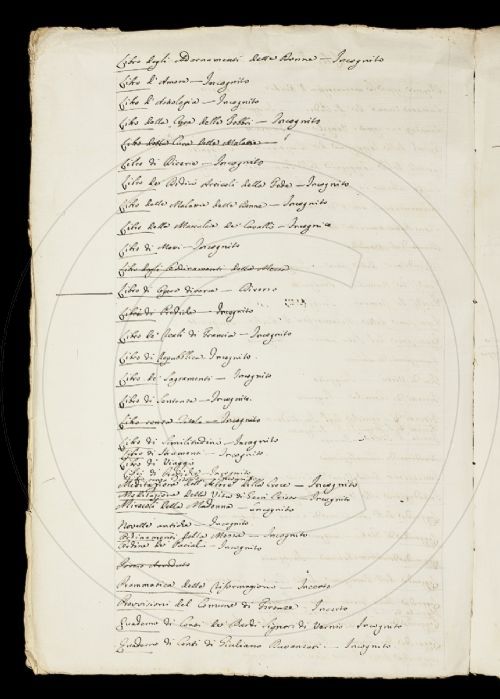 Libro degli Adornamenti delle Donne — Incognito
Libro d'Amore — Incognito
Libro d'Astrologia — Incognito
Libro della Cura delle Febbri — Incognito
Libro della Cura delle Malattie —
Libro di Diceria — Incognito
Libro de' Dodici Articoli della Fede — Incognito
Libro delle Malattie delle Donne — Incognito
Libro della Mascalcia de' Cavalli — Incognito
Libro di Mari — Incognito
Libro degli Ordinamenti della Messa
Libro di Opere diverse — Diverso
Libro di Prediche — Incognito
Libro de' Reali di Francia — Incognito
Libro di Repubblica Incognito.
Libro de' Sagramenti — Incognito
Libro di Sentenze — Incognito.
Libro senza Titolo — Incognito
Libro di Similitudini — Incognito
Libro di — Incognito
Libro di Viaggi
Libro di Incognito
Meditazione dell' della Croce — Incognito
Meditazione della Vita di Gesù Cristo — Incognito
Miracoli della Madonna — Incognito
Novelle antiche — Incognito
Ordinamenti della Messa — Incognito
Ordine de' — Incognito
Grammatica della — Incerto
Provvisioni del Comune di Firenze Incerto
Quaderno di Conti de' Bardi Signori di Vernio — Incognito
Quaderno di Conti di Giuliano — Incognito